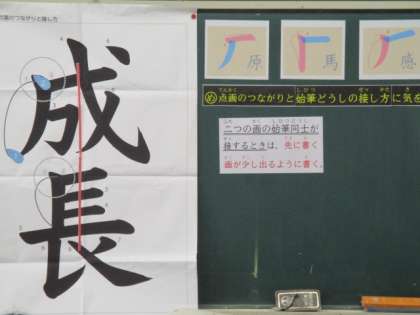 点画のつながりと接し方
成長
原
馬
感
め 点画のつながりと始筆どうしの接し方に気を
二つの画の始筆同士が
接するときは、先に書く
画が少し出るように書く。